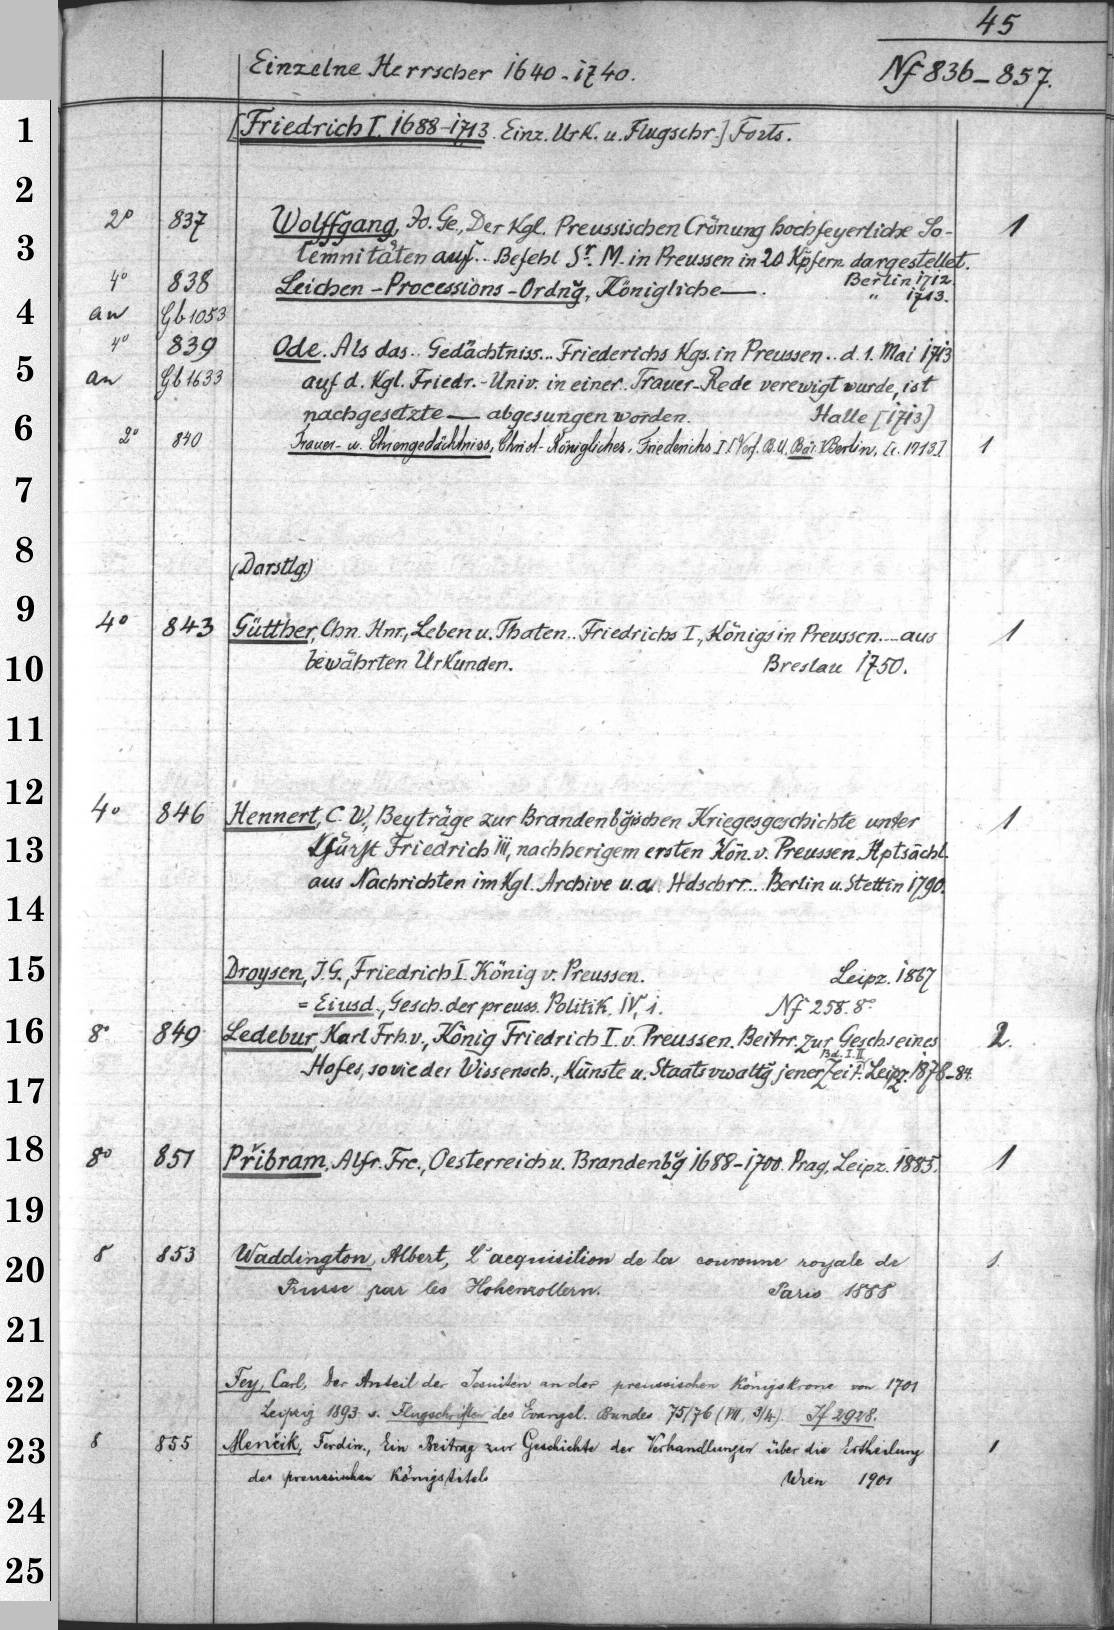 45
Einzelne Herrscher 1640-1740. Nf 836-857.
1 [Friedrich I. 1688-1713. Einz. Urk. u. Flugschr.] Forts.
2
2° 837 Wolffgang, Jo. Ge., Der Kgl. Preussischen Crönung hochfeyerliche So- 1
3 lemnitäten auf.. Befehl Sr. M. in Preussen in 20 Kpfern dargestellet.
Berlin 1712.
4° 838 Leichen-Processions-Ordng, Königliche —. " 1713.
4 an Gb 1053
4° 839 Ode. Als das.. Gedächtniss... Friederichs Kgs. in Preussen.. d. 1. Mai 1713
5 an Gb 1633 auf d. Kgl. Friedr.-Univ. in einer Trauer-Rede verewigt wurde, ist
nachgesetzte — abgesungen worden. Halle [1713]
6 2° 840 Trauer- u. Ehrengedächtniss, Christ-Königliches, Friederichs I [Verf. B. U. Bär.] (Berlin, 1713] 1
7
8
(Darstlg.)
9 4° 843 Gütther, Chn. Hnr., Leben u. Thaten.. Friedrichs I., Königs in Preussen.... aus 1
10 bewährten Urkunden. Breslau 1750.
11
12
4° 846 Hennert, C. W., Beyträge zur Brandenbgischen Kriegesgeschichte unter 1
13 Kfürst Friedrich III, nachherigem ersten Kön. v. Preussen. Hptsächl.
aus Nachrichten im Kgl. Archive u. a. Hdschrr... Berlin u. Stettin 1790.
14
15 Droysen, J. G., Friedrich I. König v. Preussen. Leipz. 1867
= Eiusd., Gesch. der preuss. Politik. IV, 1. Nf 258. 8°
16 8° 849 Ledebur, Karl Frh. v., König Friedrich I. v. Preussen. Beitrr. zur Gesch seines 2.
Bd. I. II
17 Hofes, sowie der Wissensch., Künste u. Staatsvwaltg jener Zeit. Leipz. 1878-84.
18 8° 851 Přibram, Alfr. Frc., Oesterreich u. Brandenbg 1688-1700. Prag, Leipz. 1885. 1
19
20 8 853 Waddington, Albert, L'acquisition de la couronne royale de 1.
Prusse par les Hohenzollern. Paris 1888
21
22 Fey, Carl, Der Anteil der Jesuiten an der preussischen Königskrone von 1701
Leipzig 1893 s. Flugschriften des Evangel. Bundes 75/76 (VII, 3/4). If 2928.
23 8 855 Menčik, Ferdin., Ein Beitrag zur Geschichte der Verhandlungen über die Ertheilung 1
des preussischen Königstitels Wien 1901
24
25